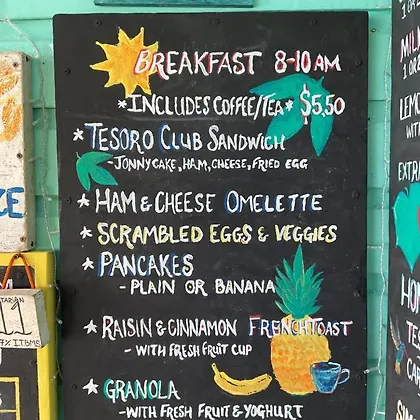 BREAKFAST 8-10 AM
*INCLUDES COFFEE/TEA* $5,50
* TESORO CLUB SANDWICH
-JONNYCAKE, HAM, CHEESE, FRIED EGG
* HAM & CHEESE OMELETTE
* SCRAMBLED EGGS & VEGGIES
* PANCAKES
- PLAIN OR BANANA
* RAISIN & CINNAMON FRENCHTOAST
- WITH FRESH FRUIT CUP
* GRANOLA
-WITH FRESH FRUIT & YOGHURT
11
7% ITBMS